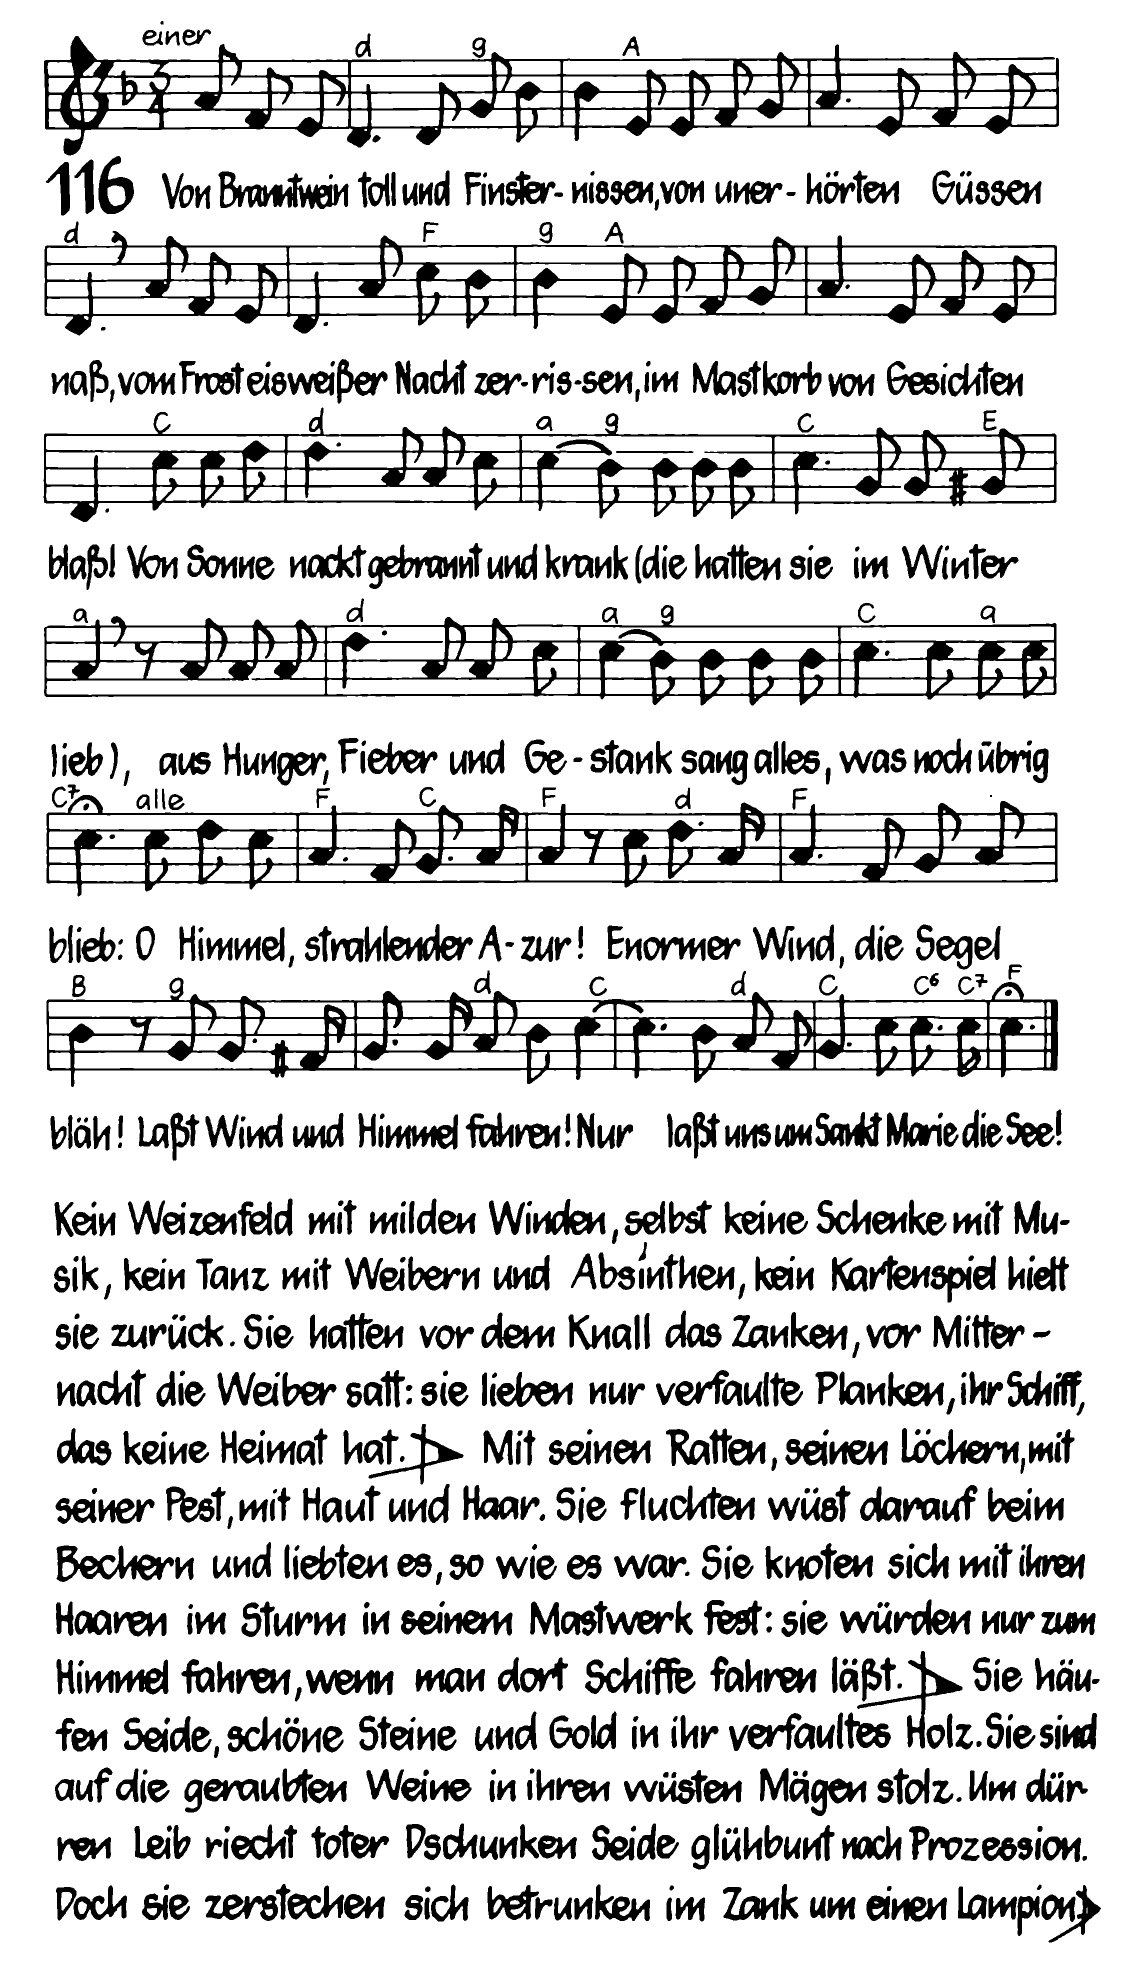 einer d g A
116 Von Branntwein toll und Finster-nissen, von uner-hörten Güssen
d F g A
naß, vom Frost eisweißer Nacht zer-ris-sen, im Mastkorb von Gesichten
C d a g C E
blaß! Von Sonne nackt gebrannt und krank (die hatten sie im Winter
a d a g C a
lieb), aus Hunger, Fieber und Ge-stank sang alles, was noch übrig
C7 alle F C F d F
blieb: O Himmel, strahlender A-zur! Enormer Wind, die Segel
B g d C d C C6 C7 F
bläh! Laßt Wind und Himmel fahren! Nur laßt uns um Sankt Marie die See!
Kein Weizenfeld mit milden Winden, selbst keine Schenke mit Mu-
sik, kein Tanz mit Weibern und Absinthen, kein Kartenspiel hielt
sie zurück. Sie hatten vor dem Knall das Zanken, vor Mitter-
nacht die Weiber satt: sie lieben nur verfaulte Planken, ihr Schiff,
das keine Heimat hat. Mit seinen Ratten, seinen Löchern, mit
seiner Pest, mit Haut und Haar. Sie fluchten wüst darauf beim
Bechern und liebten es, so wie es war. Sie knoten sich mit ihren
Haaren im Sturm in seinem Mastwerk fest: sie würden nur zum
Himmel fahren, wenn man dort Schiffe fahren läßt. Sie häu-
fen Seide, schöne Steine und Gold in ihr verfaultes Holz. Sie sind
auf die geraubten Weine in ihren wüsten Mägen stolz. Um dür-
ren Leib riecht toter Dschunken Seide glühbunt nach Prozession.
Doch sie zerstechen sich betrunken im Zank um einen Lampion.